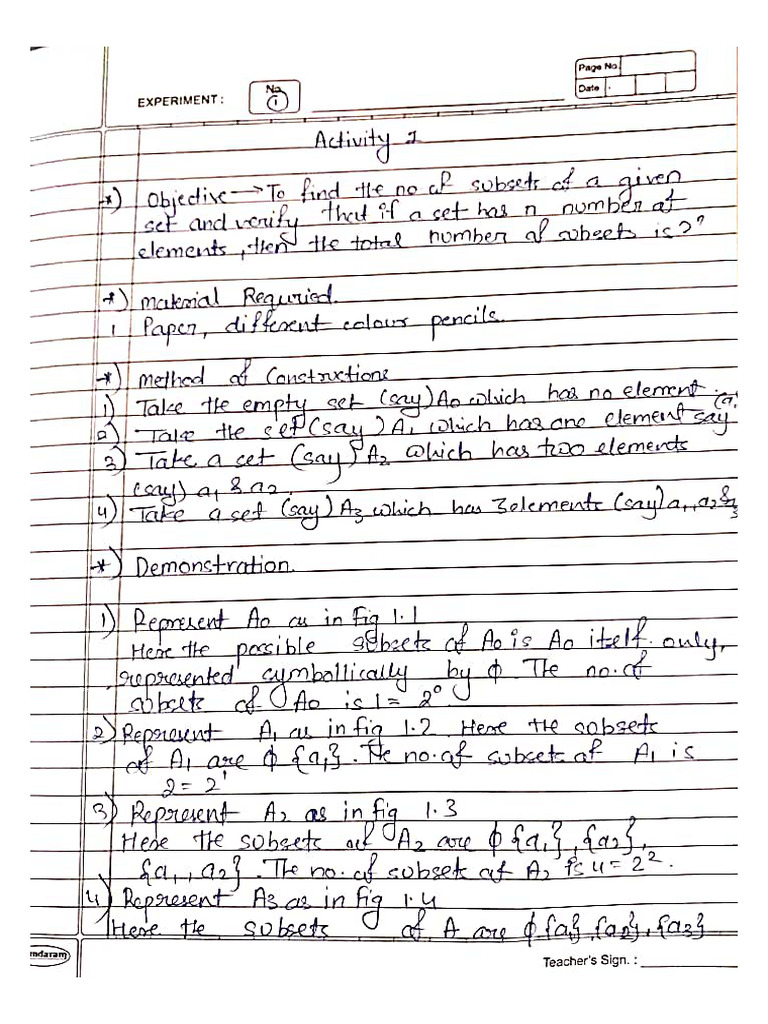 Page No.
Date
EXPERIMENT : No 1
Activity 1
*) Objective → To find the no of subsets of a given
set and verify that if a set has n number of
elements, then the total number of subsets is 2ⁿ
*) Material Requried.
1 Paper, different colour pencils.
*) Method of Constructions
1) Take the empty set (say) A₀ which has no element.
2) Take the set (say) A₁ which has one element say (a
3) Take a set (say) A₂ which has two elements
(say) a₁ & a₂.
4) Take a set (say) A₃ which has 3 elements (say) a₁, a₂ & a₃
*) Demonstration.
1) Represent A₀ as in fig 1.1
Here the possible subsets of A₀ is A₀ itself only,
represented symbollically by ϕ The no. of
subsets of A₀ is 1 = 2⁰.
2) Represent A₁ as in fig 1.2 Here the subsets
of A₁ are ϕ {a₁}. The no. of subset of A₁ is
2 = 2¹
3) Represent A₂ as in fig 1.3
Here the subsets of A₂ are ϕ {a₁}, {a₂},
{a₁, a₂}. The no. of subsets of A₂ is 4 = 2².
4) Represent A₃ as in fig 1.4
Here the subsets of A are ϕ {a}, {a₂}, {a₃}
ndaram
Teacher's Sign. :